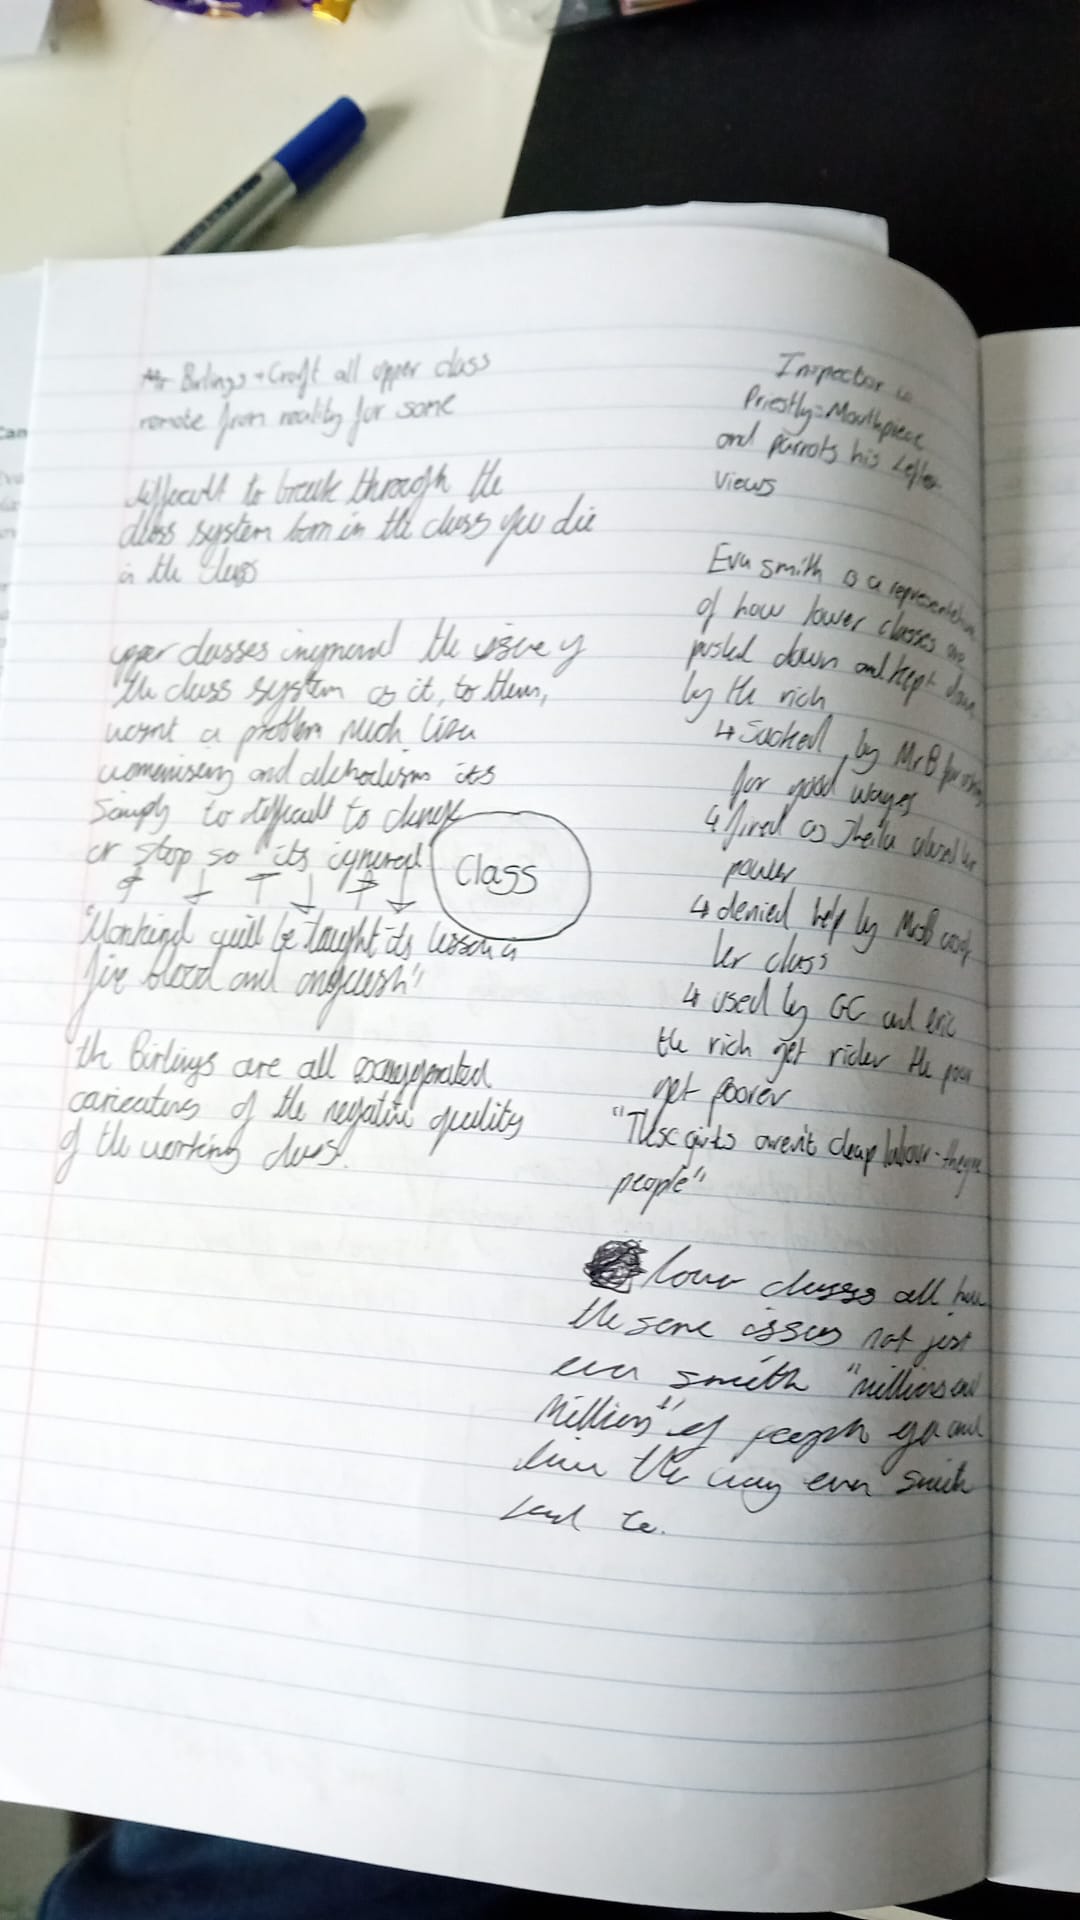 Birlings + Croft all upper class
remote from reality for some
difficult to break through the
class system born in the class you die
in the class
upper classes ingnored the issue of
the class system as it, to them,
wasnt a problem much like
womenising and alchodism its
simply to difficult to change
or stop so its ignored
"Mankind will be taught its lesson in
fire blood and anguish"
the Birlings are all exaggerated
caricatures of the negative quality
of the working class.
Class
Inspector is
Priestly=Mouthpiece
and parrots his Leften
views
Eva smith is a representation
of how lower classes are
pushed down and kept down
by the rich
↳ Sacked by Mr B for asking
for good wages
↳ fired as Sheila abused her
power
↳ denied help by MrsB
her class
↳ used by GC and eric
the rich get richer the poor
get poorer
"These girls aren't cheap labour - theyre
people"
lower classes all have
the same issues not just
eva smith "millions and
millions" of people go and
live the way eva smith
had to.